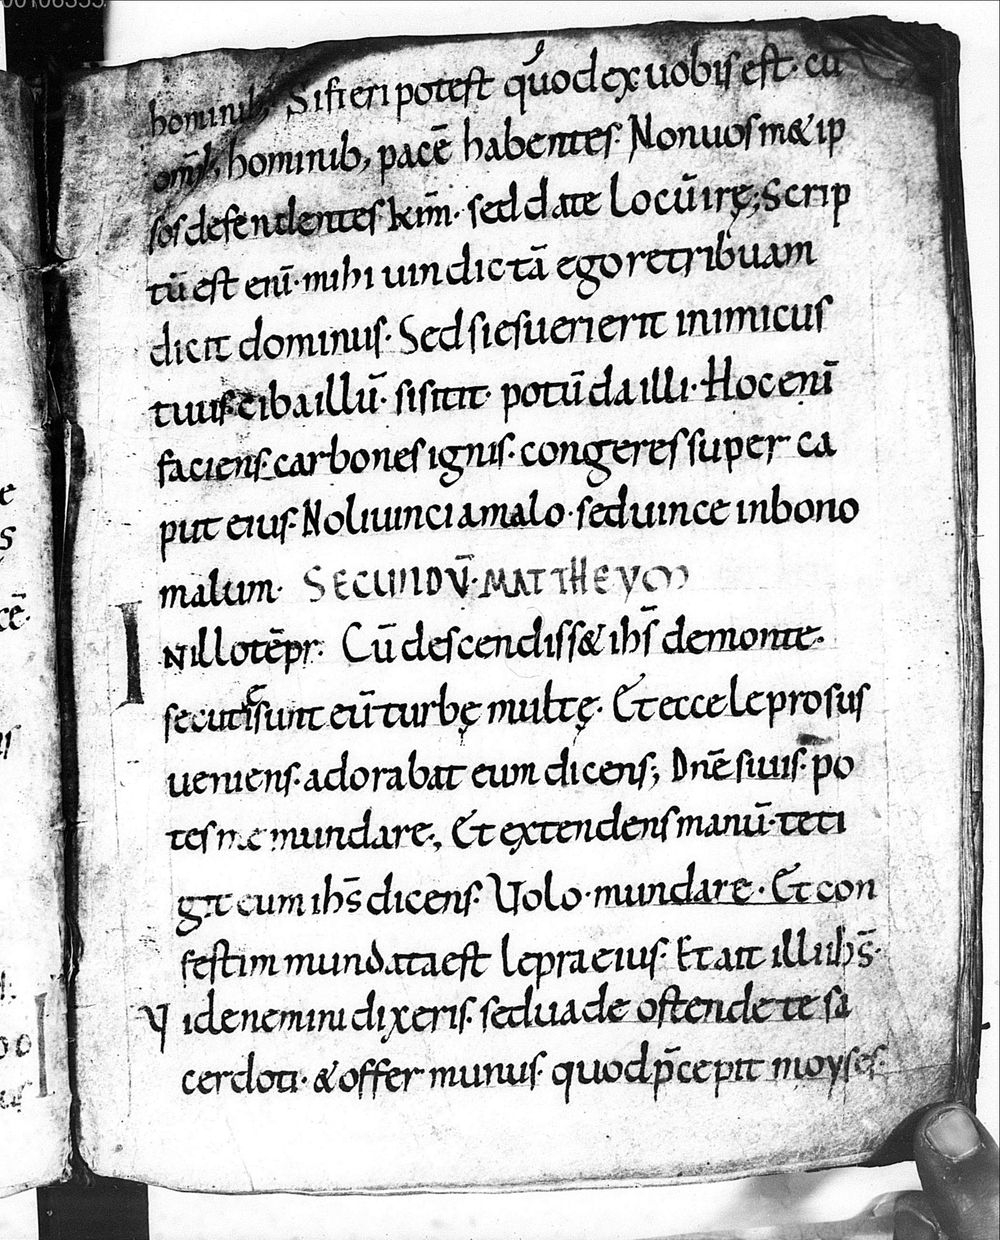 hominib; Si fieri potest quod ex uobis est· cū
omīb; hominib; pacē habentes· Non uosm& ip
sos defendentes kīm· sed date locū irę; Scrip
tū est enī· mihi uindictā ego retribuam
dicit dominus· Sed si esuerierit inimicus
tuus· ciba illū· si sitit· potū da illi· Hoc enī
faciens· carbones ignis· congeres super ca
put eius· Noli uinci a malo· sed uince in bono
malum· SECUNDŪ· MATTHEUM
IN illo tēpr· Cū descendiss& ihs̄ de monte·
secuti sunt eū turbę multę· Et ecce leprosus
ueniens· adorabat eum dicens; Dnē si uis· po
tes me mundare·, Et extendens manū· teti
git eum ihs̄ dicens· Uolo· mundare· Et con
festim mundata est lepra eius· Et ait illi ihs̄·
Uide nemini dixeris· sed uade ostende te sa
cerdoti· & offer munus· quod p̄cepit moyses·